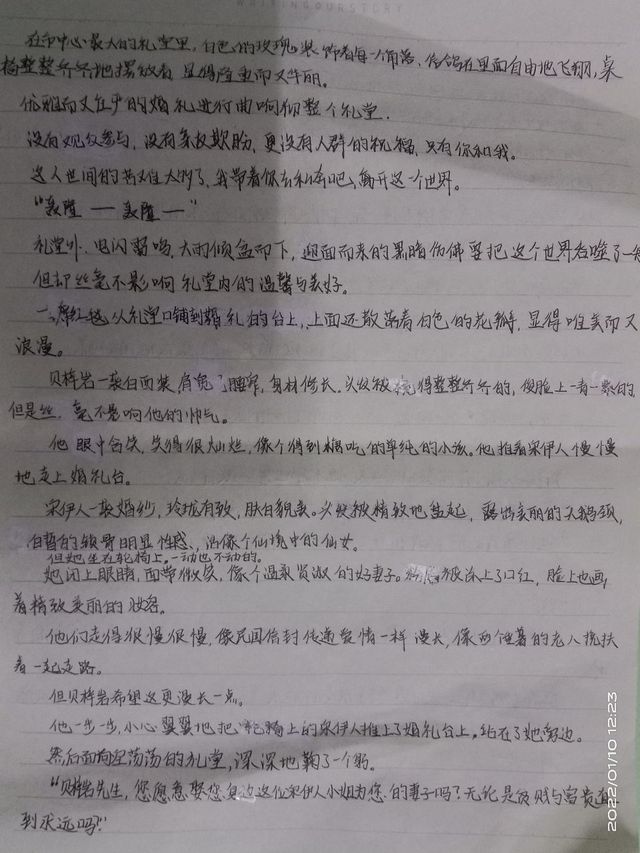 WRITINGOURSTORY
在市中心最大的礼堂里，白色的玫瑰装饰着每一个角落、信鸽在里面自由地飞翔，桌
椅整整齐齐地摆放着 显得隆重而又华丽。
优雅而又庄严的婚礼进行曲响彻整个礼堂.
没有观众参与，没有亲友欺盼，更没有人群的祝福，只有你和我。
这人世间的苦难太多了，我带着你去私奔吧，离开这一个世界。
“轰隆 — 轰隆 —”
礼堂外，电闪雷鸣，大雨倾盆而下，迎面而来的黑暗仿佛要把这个世界吞噬了一般
但却丝毫不影响礼堂内的温馨与美好。
一席红毯从礼堂口铺到婚礼的台上，上面还散落着白色的花瓣，显得唯美而又
浪漫。
贝梓岩一装白西装，肩宽腰窄，身材修长。头发被梳得整整齐齐的，俊脸上一青一紫的
但是丝.毫不影响他的帅气。
他眼中含笑，笑得很灿烂，像个得到糖吃的单纯的小孩。他推着宋伊人慢慢
地走上婚礼台。
宋伊人一袭婚纱，玲珑有致，肤白貌美。头发被精致地盘起，露出美丽的天鹅颈，
白皙的锁骨明显性感，活像个仙境中的仙女。
但她坐在轮椅上。一动也不动的。
她闭上眼睛，面带微笑，像个温柔贤淑的好妻子。被涂上了口红，脸上也画
着精致美丽的妆容。
他们走得很慢很慢，像民国信封传递爱情一样漫长，像两个蹒跚的老人搀扶
着一起走路。
但贝梓岩希望这更漫长一点。
他一步一步，小心翼翼地把轮椅上的宋伊人推上了婚礼台上，站在了她旁边。
然后面向空荡荡的礼堂，深深地鞠了一个躬。
“贝梓岩先生，您愿意娶您身边这位宋伊人小姐为您的妻子吗？无论是贫贱与富贵直
到永远吗？”
2022/01/10 12:23